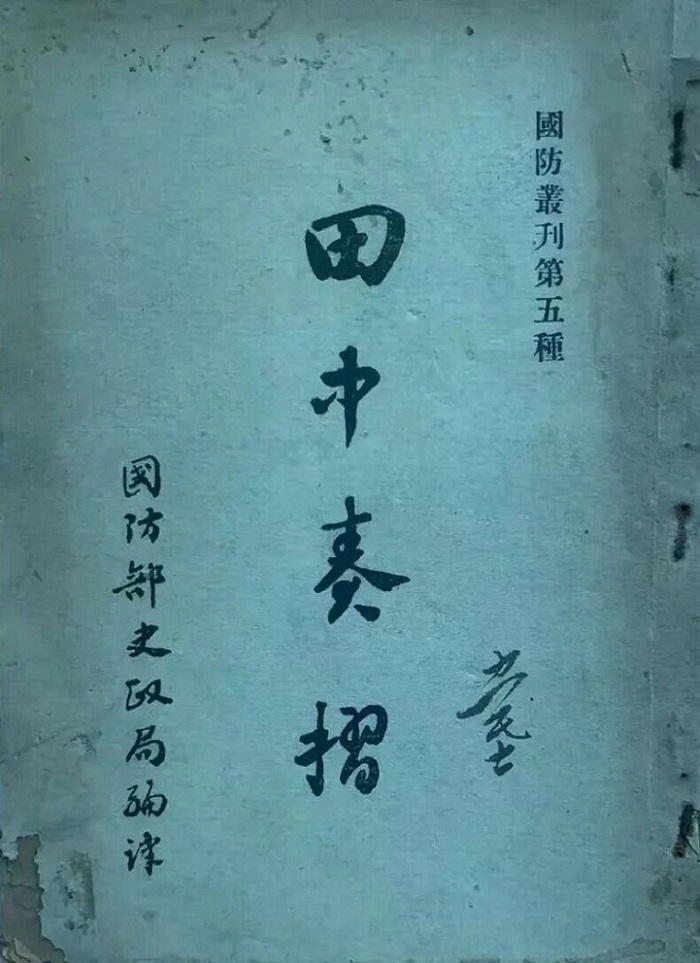 國防叢刊第五種
田中奏摺
國防部史政局編譯